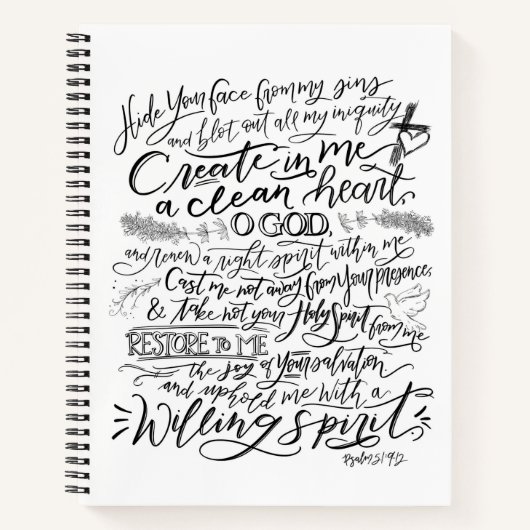 Hide Your face from my sins
and blot out all my iniquity
Create in me
a clean heart,
O GOD,
and renew a right spirit within me
Cast me not away from Your presence,
& take not your Holy Spirit from me
RESTORE TO ME
the joy of Your salvation
and uphold me with a
Willing Spirit
Psalm 51:9-12